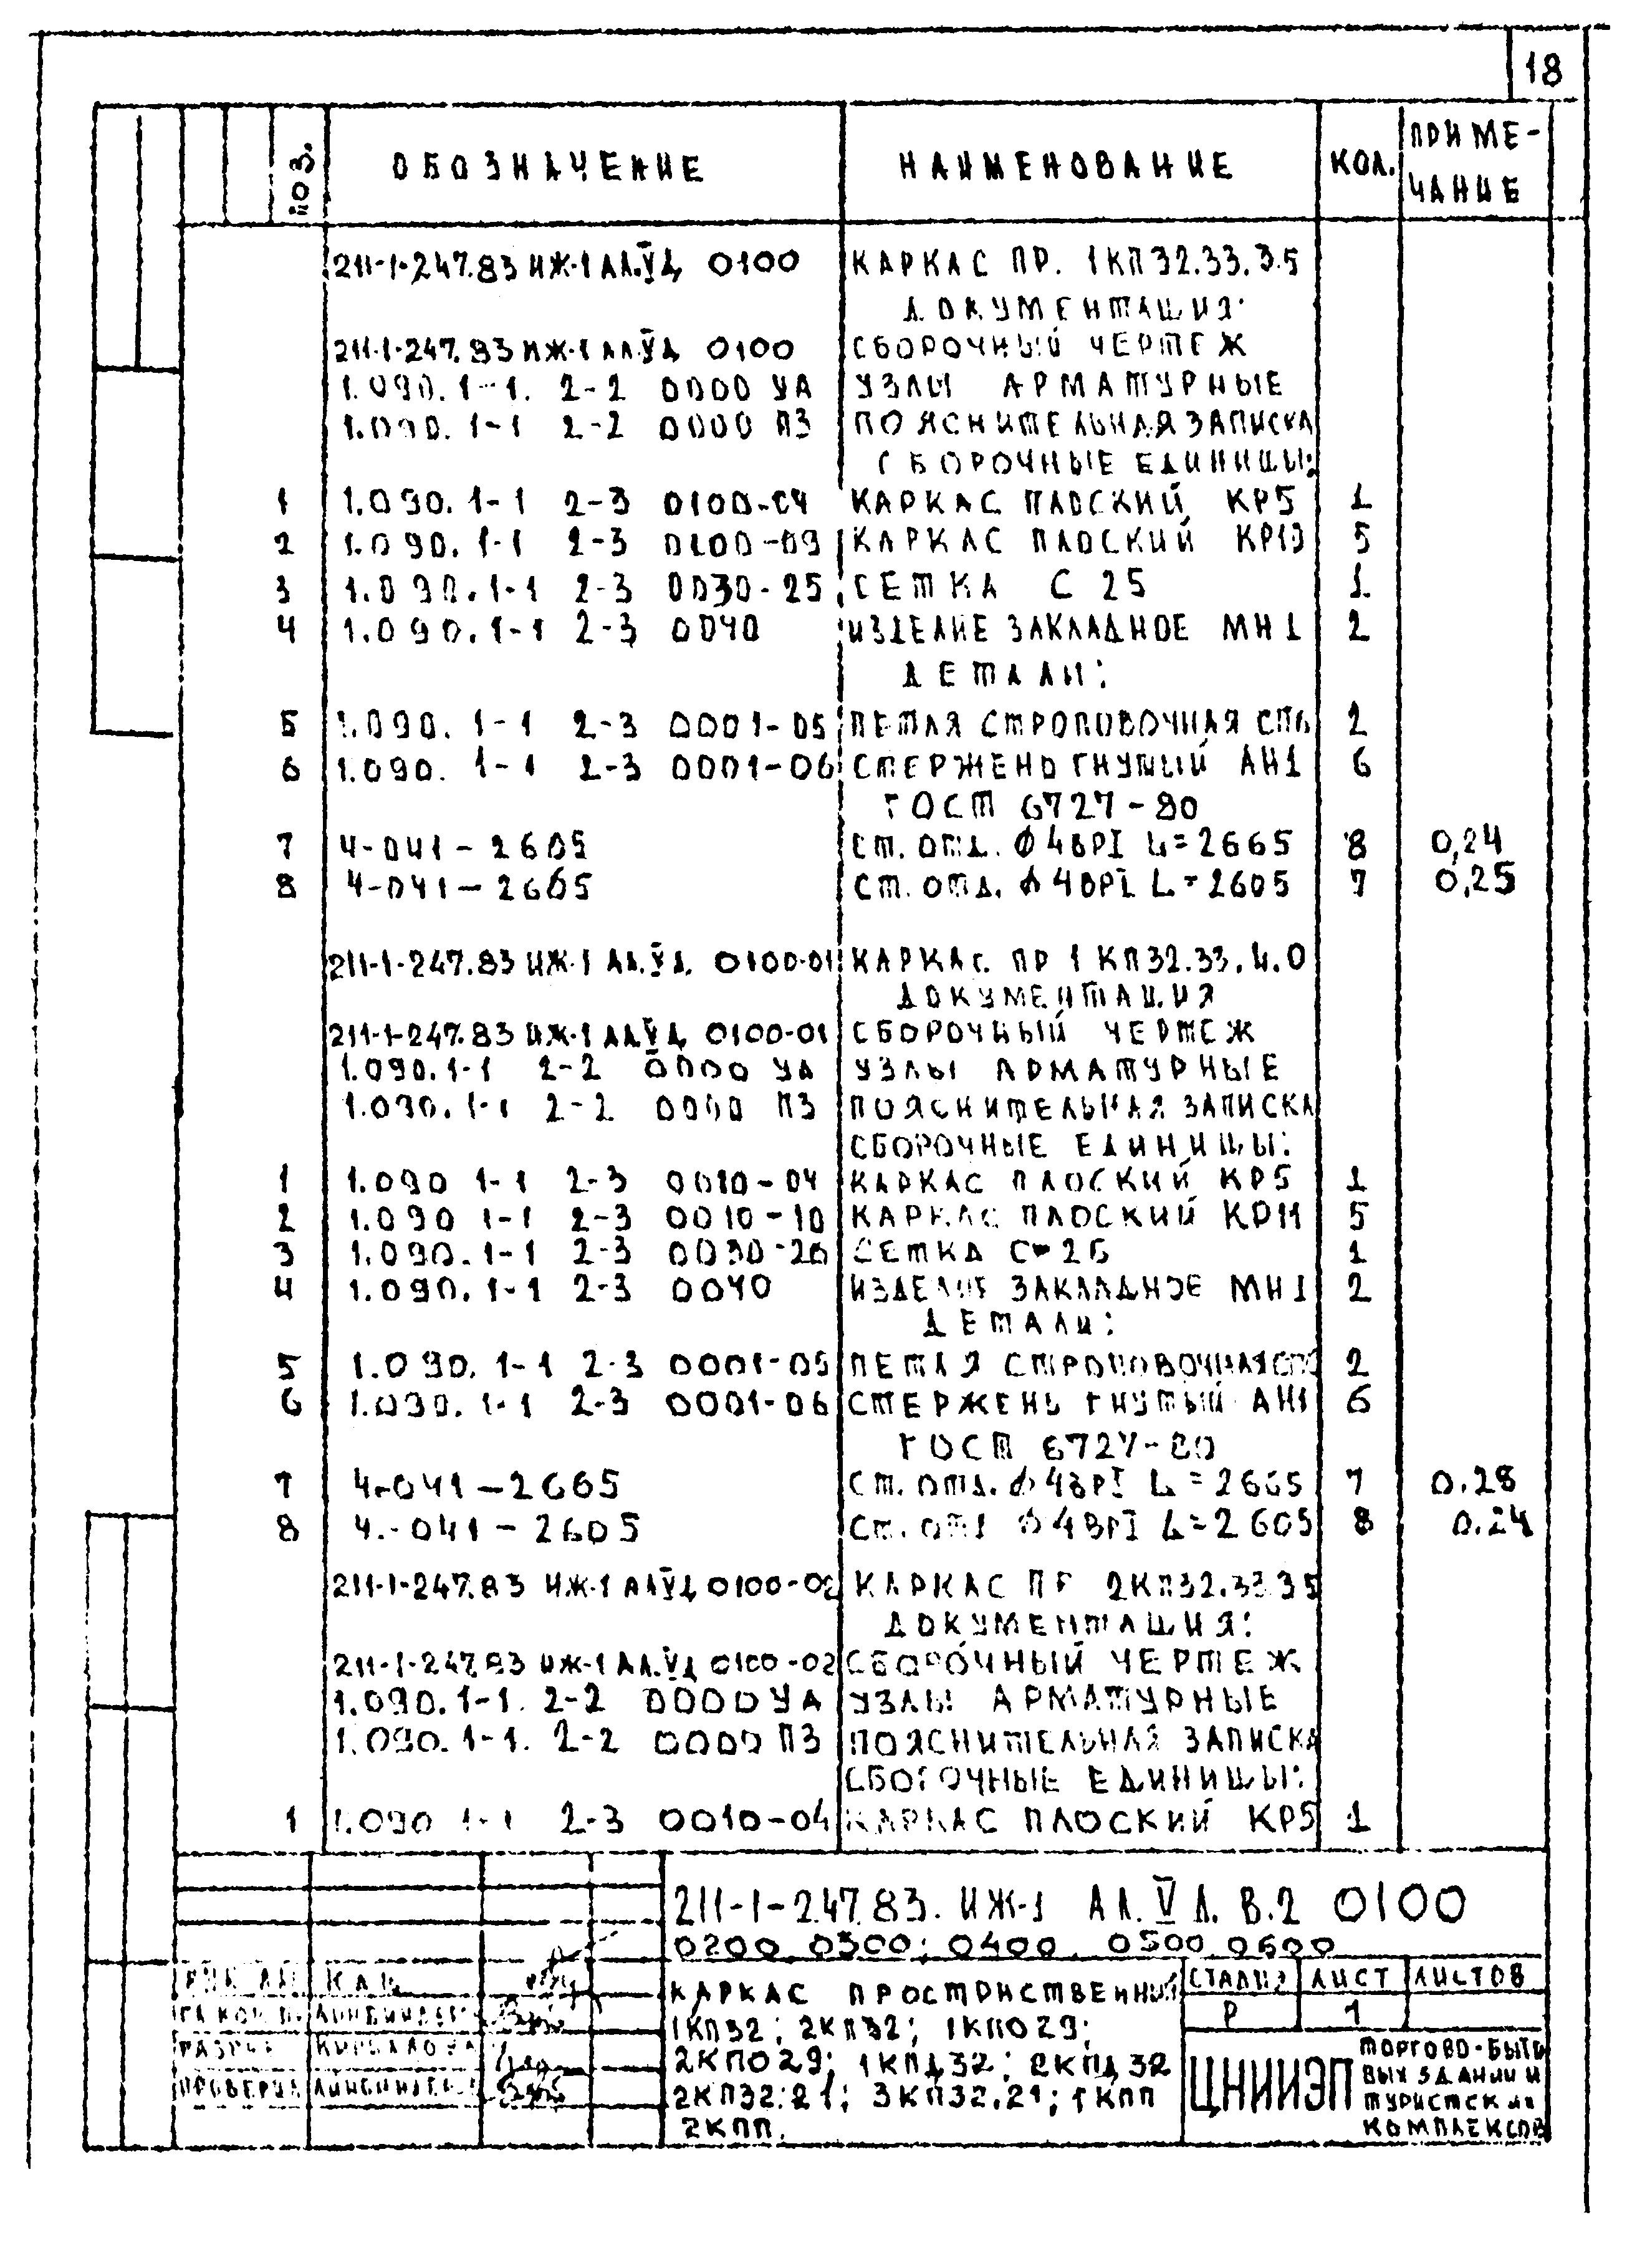 18
ПОЗ. ОБОЗНАЧЕНИЕ НАИМЕНОВАНИЕ КОЛ. ПРИМЕ-
ЧАНИЕ
211-1-247.83 ИЖ-1 АЛ.V Д 0100 КАРКАС ПР. 1КП32.33.3.5
ДОКУМЕНТАЦИЯ:
211-1-247.83 ИЖ-1 АЛ.V Д 0100 СБОРОЧНЫЙ ЧЕРТЕЖ
1.090.1-1. 2-2 0000 УА УЗЛЫ АРМАТУРНЫЕ
1.090.1-1 2-2 0000 ПЗ ПОЯСНИТЕЛЬНАЯ ЗАПИСКА
СБОРОЧНЫЕ ЕДИНИЦЫ:
1 1.090.1-1 2-3 0100-04 КАРКАС ПЛОСКИЙ КР5 1
2 1.090.1-1 2-3 0100-09 КАРКАС ПЛОСКИЙ КР10 5
3 1.090.1-1 2-3 0030-25 СЕТКА С 25 1.
4 1.090.1-1 2-3 0040 ИЗДЕЛИЕ ЗАКЛАДНОЕ МН1 2
ДЕТАЛИ:
5 1.090.1-1 2-3 0001-05 ПЕТЛЯ СТРОПОВОЧНАЯ СП6 2
6 1.090.1-1 2-3 0001-06 СТЕРЖЕНЬ ГНУТЫЙ АН1 6
ГОСТ 6727-80
7 4-041-2605 СТ. ОТД. Ф 4ВРI L=2665 8 0,24
8 4-041-2665 СТ. ОТД. Ф 4ВРI L=2605 7 0,25
211-1-247.83 ИЖ-1 АЛ.V Д. 0100-01 КАРКАС ПР 1 КП32.33.4.0
ДОКУМЕНТАЦИЯ
211-1-247.83 ИЖ-1 АЛ.V Д 0100-01 СБОРОЧНЫЙ ЧЕРТЕЖ
1.090.1-1 2-2 0000 УА УЗЛЫ АРМАТУРНЫЕ
1.090.1-1 2-2 0000 ПЗ ПОЯСНИТЕЛЬНАЯ ЗАПИСКА
СБОРОЧНЫЕ ЕДИНИЦЫ:
1 1.090 1-1 2-3 0010-04 КАРКАС ПЛОСКИЙ КР5 1
2 1.090 1-1 2-3 0010-10 КАРКАС ПЛОСКИЙ КР11 5
3 1.090.1-1 2-3 0030-26 СЕТКА С-26 1
4 1.090.1-1 2-3 0040 ИЗДЕЛИЕ ЗАКЛАДНОЕ МН1 2
ДЕТАЛИ:
5 1.090.1-1 2-3 0001-05 ПЕТЛЯ СТРОПОВОЧНАЯ 2
6 1.090.1-1 2-3 0001-06 СТЕРЖЕНЬ ГНУТЫЙ АН1 6
ГОСТ 6727-80
7 4-041-2665 СТ. ОТД. Ф 4ВРI L=2665 7 0.28
8 4-041-2605 СТ. ОТД Ф 4ВРI L=2605 8 0.24
211-1-247.83 ИЖ-1 АЛ V Д 0100-02 КАРКАС ПР 2КП32.33 35
ДОКУМЕНТАЦИЯ:
211-1-247.83 ИЖ-1 АЛ.V Д 0100-02 СБОРОЧНЫЙ ЧЕРТЕЖ
1.090.1-1. 2-2 0000 УА УЗЛЫ АРМАТУРНЫЕ
1.090.1-1. 2-2 0000 ПЗ ПОЯСНИТЕЛЬНАЯ ЗАПИСКА
СБОРОЧНЫЕ ЕДИНИЦЫ:
1 1.090 1-1 2-3 0010-04 КАРКАС ПЛОСКИЙ КР5 1
211-1-247.83. ИЖ-1 АЛ. V Д. В.2 0100
0200, 0300; 0400, 0500 0600
КАРКАС ПРОСТРНСТВЕННЫЙ
1КП32; 2КП32; 1КПО29;
2КПО29; 1КПД32; 2КПД32
2КП32.21; 3КП32.21; 1КПП
2КПП.
СТАДИЯ ЛИСТ ЛИСТОВ
Р 1
ЦНИИЭП ТОРГОВО-БЫТО
ВЫХ ЗДАНИЙ И
ТУРИСТСКИХ
КОМПЛЕКСОВ
РУК.
РАЗРАБ.
ПРОВЕРИЛ